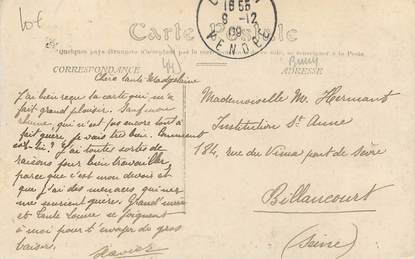 Lot
Carte Postale
18 55
9 - 12
09
VENDÉE
CORRESPONDANCE
ADRESSE
Chère tante Madgeleine
J'ai bien reçu ta carte qui m'a
fait grand plaisir. Sauf mon
rhume, qui n'est pas encore tout à
fait guéri, je vais très bien. Comment
vas-tu? J'ai toutes sortes de
raisons pour bien travailler
parce que c'est mon devoir et
que j'ai des menaces qui ne
me sourient guère. Grand'mère
et tante Louise se joignent
à moi pour t'envoyer de gros
baisers.
Mademoiselle M. Hermant
Institution Ste Anne
184, rue du Vieux pont de Sèvre
Billancourt
(Seine)